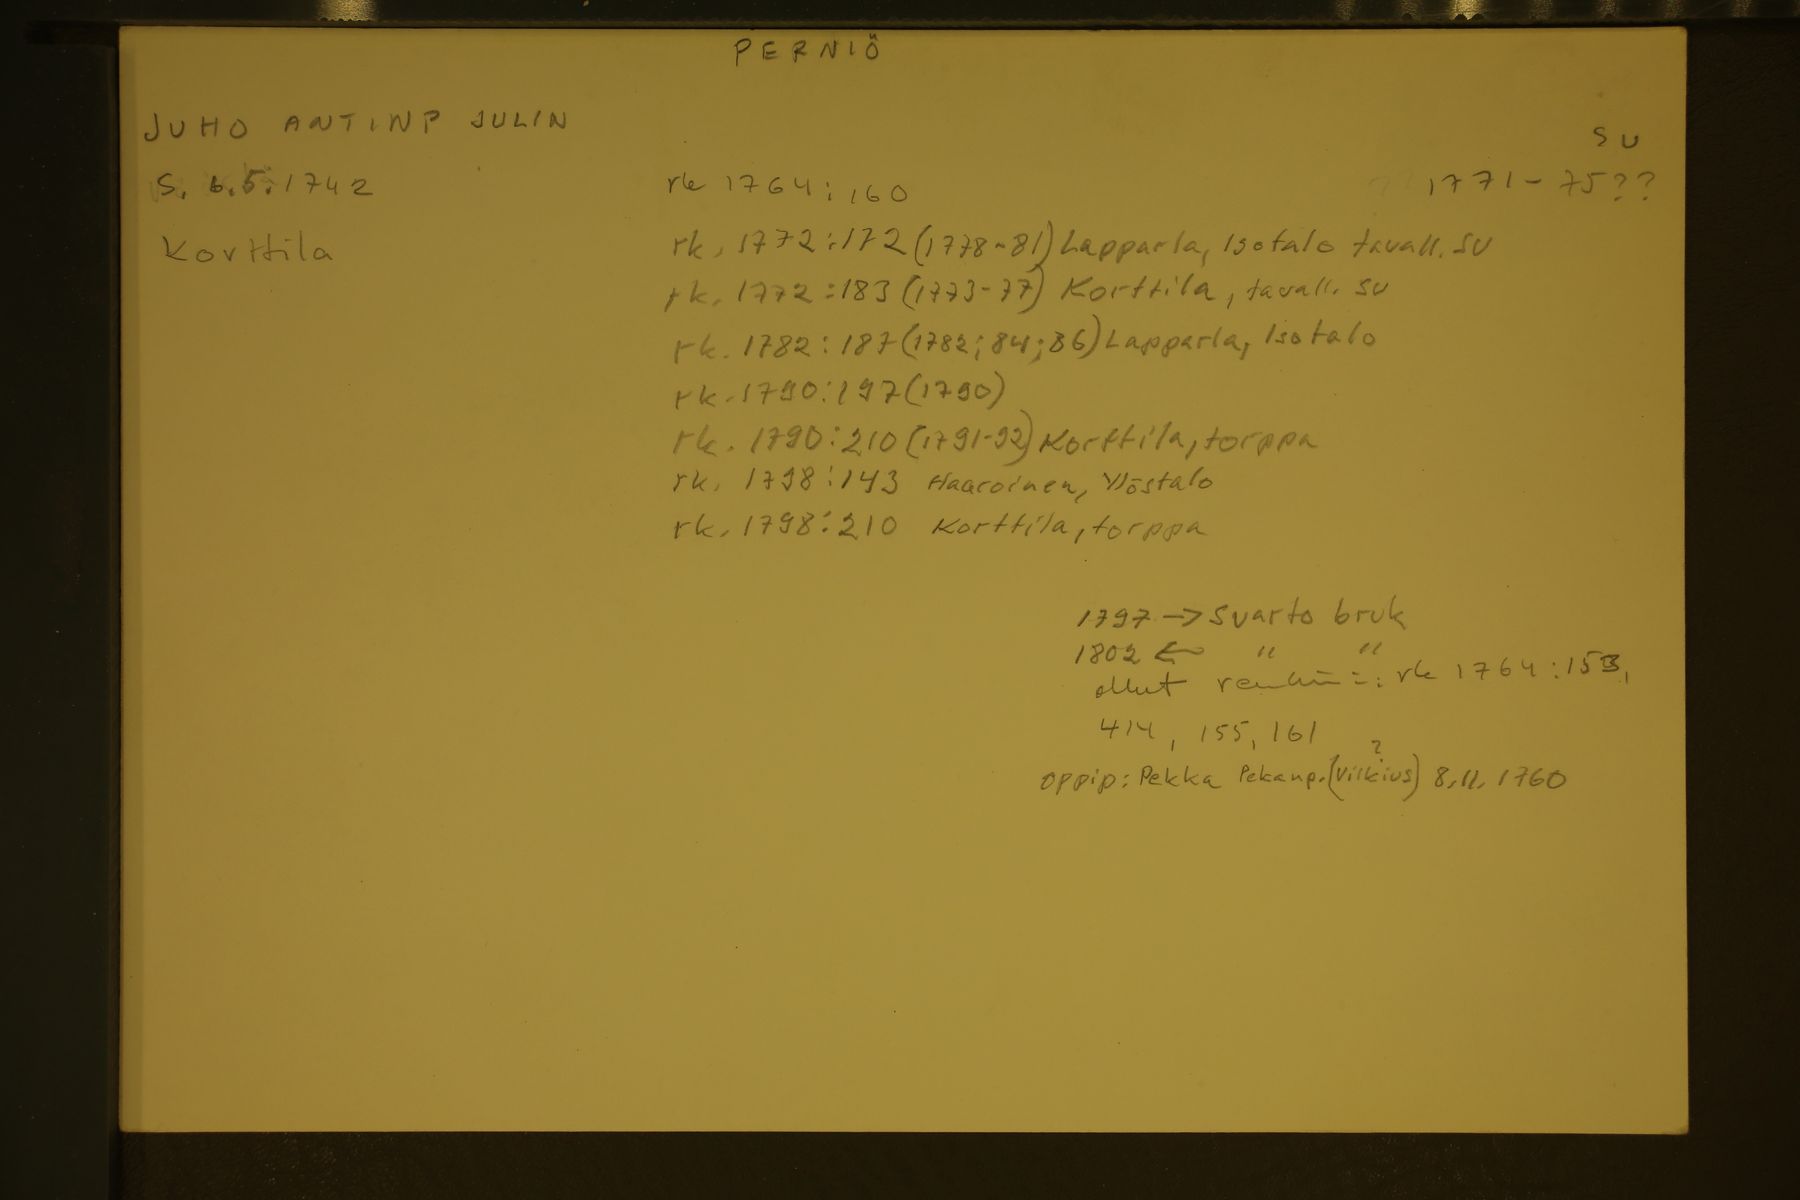 PERNIÖ
JUHO ANTINP JULIN
SU
S. 6.5.1742 rk 1764:160 1771-75??
Korttila rk. 1772:172 (1778-81) Lapparla, Isotalo tavall. SU
rk. 1772:183 (1773-77) Korttila, tavall. SU
rk. 1782:187 (1782; 84; 86) Lapparla, Isotalo
rk. 1790:197 (1790)
rk. 1790:210 (1791-92) Korttila, torppa
rk. 1798:143 Haaroinen, Ylöstalo
rk. 1798:210 Korttila, torppa
1797 → Svarto bruk
1802 ← " "
ollut : rk 1764:153,
414, 155, 161
?
oppip: Pekka Pekanp. (Vilkius) 8.11. 1760